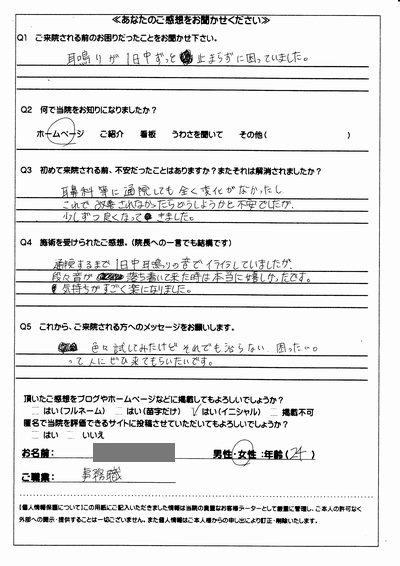 ≪あなたのご感想をお聞かせください≫
Q1 ご来院される前のお困りだったことをお聞かせ下さい。
耳鳴りが1日中ずっと止まらずに困っていました。
Q2 何で当院をお知りになりましたか？
ホームページ ご紹介 看板 うわさを聞いて その他( )
Q3 初めて来院される前、不安だったことはありますか？またそれは解消されましたか？
耳鼻科等に通院しても全く変化がなかったし
これで改善されなかったらどうしようかと不安でしたが、
少しずつ良くなってきました。
Q4 施術を受けられたご感想。（院長への一言でも結構です）
通院するまで1日中耳鳴りの音でイライラしていましたが、
段々音が落ち着いて来た時は本当に嬉しかったです。
気持ちがすごく楽になりました。
Q5 これから、ご来院される方へのメッセージをお願いします。
色々試してみたけどそれでも治らない、困ったい。
って人にぜひ来てもらいたいです。
頂いたご感想をブログやホームページなどに掲載してもよろしいでしょうか？
□はい(フルネーム) □はい(苗字だけ) ✓はい(イニシャル) □掲載不可
匿名で当院を評価できるサイトに投稿させていただいてもよろしいでしょうか？
□はい □いいえ
お名前： 男性・女性：年齢(24)
ご職業： 事務職
【個人情報保護について】この用紙にご記入いただきました情報は当院の貴重なお客様データーとして厳重に管理し、ご本人の許可なく
外部への開示・提供することは一切ございません。また個人情報はご本人様からの申し出により訂正・削除いたします。